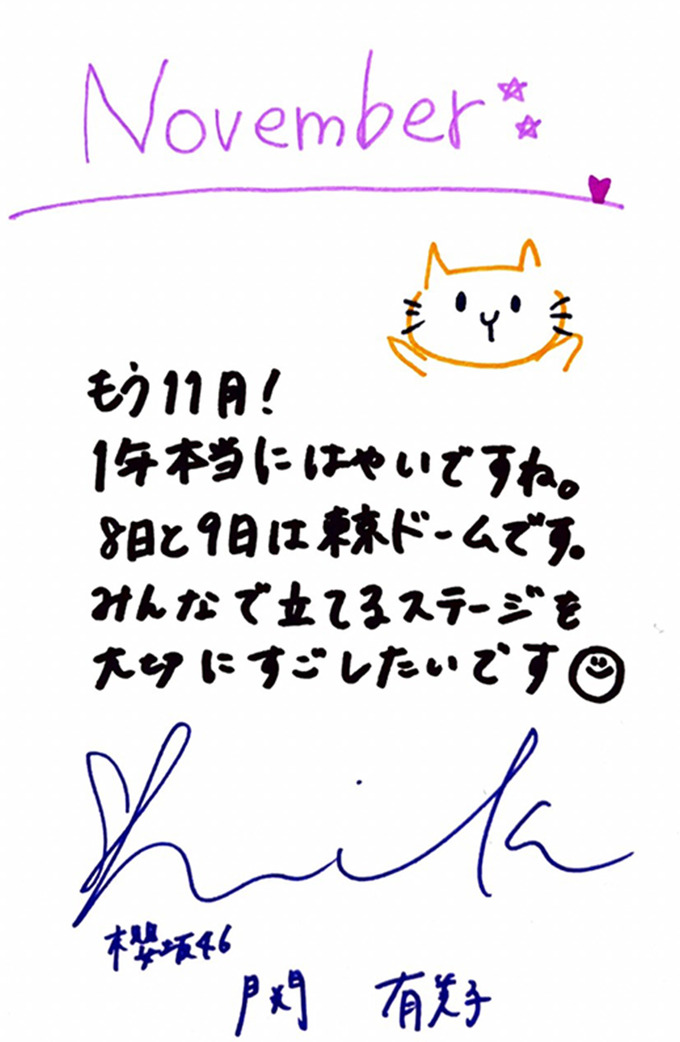 November
もう11月!
1年本当にはやいですね。
8日と9日は東京ドームです。
みんなで立てるステージを
大切にすごしたいです
櫻坂46
関 有美子